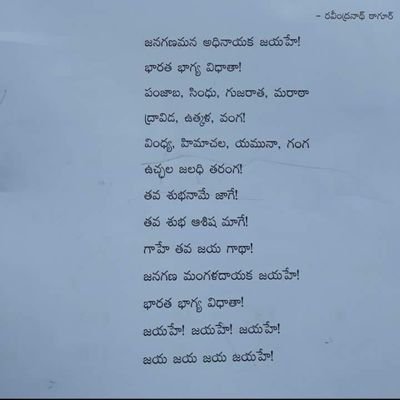 - రవీంద్రనాథ్ ఠాగూర్
జనగణమన అధినాయక జయహే!
భారత భాగ్య విధాతా!
పంజాబ, సింధు, గుజరాత, మరాఠా
ద్రావిడ, ఉత్కళ, వంగ!
వింధ్య, హిమాచల, యమునా, గంగ
ఉచ్ఛల జలధి తరంగ!
తవ శుభనామే జాగే!
తవ శుభ ఆశిష మాగే!
గాహే తవ జయ గాథా!
జనగణ మంగళదాయక జయహే!
భారత భాగ్య విధాతా!
జయహే! జయహే! జయహే!
జయ జయ జయ జయహే!